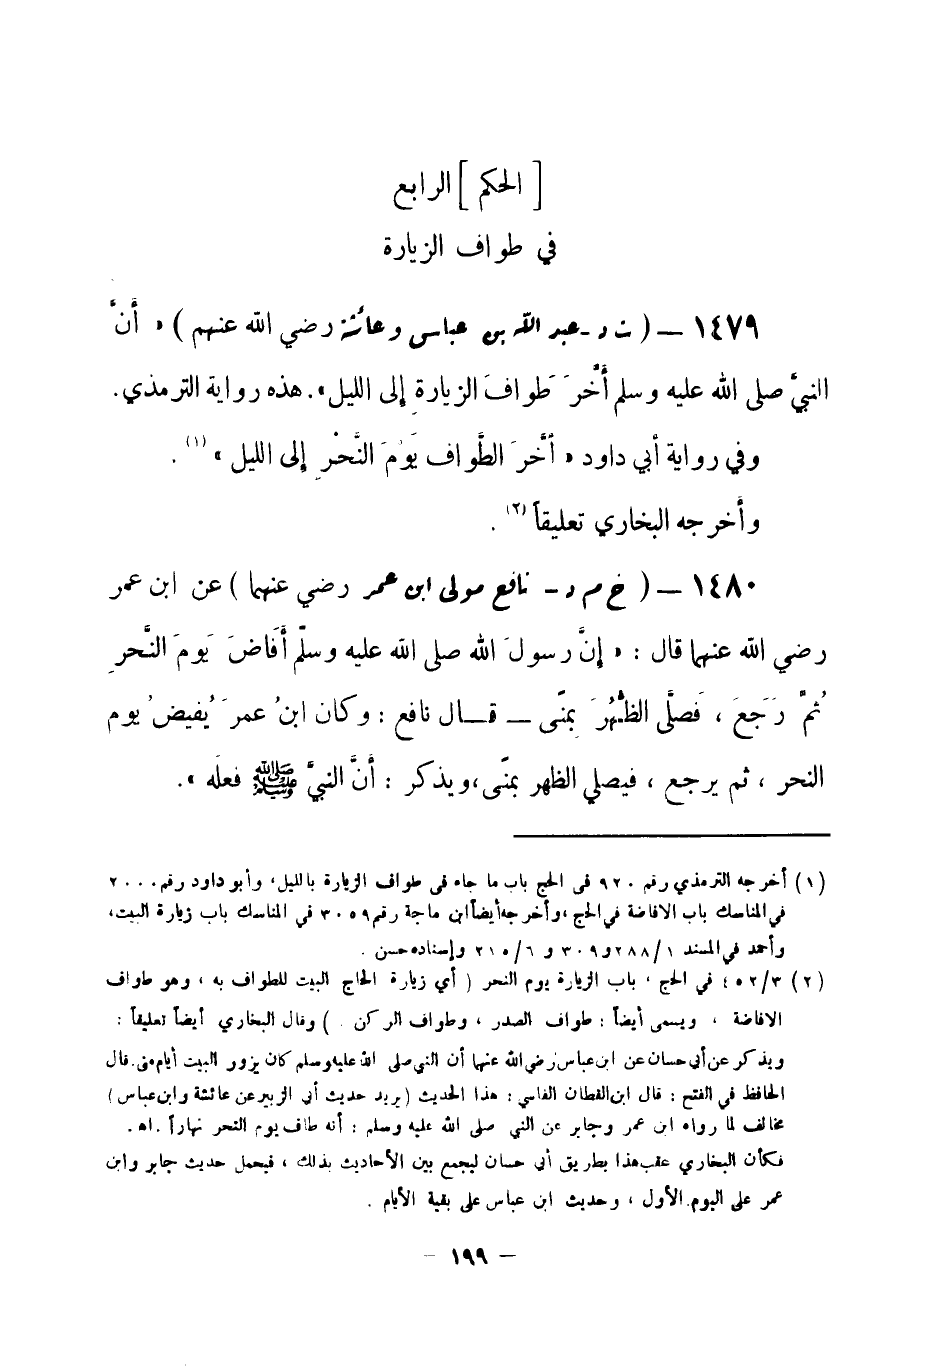 [ الحكم ] الرابع
في طواف الزيارة
١٤٧٩ — ( ت د - عبد الله بن عباس وعائشة رضي الله عنهم ) « أَنَّ
النبيَّ صلى الله عليه وسلم أَخَّرَ طَوافَ الزيارةِ إلى الليل » . هذه رواية الترمذي .
وفي رواية أبي داود « أَخَّرَ الطَّواف يَوْمَ النَّحْرِ إلى الليل » (١) .
وأخرجه البخاري تعليقاً (٢) .
١٤٨٠ — ( خ م د - نافع مولى ابن عمر رضي عنهما ) عن ابن عمر
رضي الله عنهما قال : « إنَّ رسولَ الله صلى الله عليه وسلَّم أَفَاضَ يَومَ النَّحرِ
ثُمَّ رَجَعَ ، فَصلَّى الظُّهْرَ بِمنًى — قال نافع : وكان ابنُ عمرَ يُفيضُ يوم
النحر ، ثم يرجع ، فيصلي الظهر بمنًى ، ويذكر : أَنَّ النبيَّ ﷺ فعلَه » .
(١) أخرجه الترمذي رقم ٩٢٠ في الحج باب ما جاء في طواف الزيارة بالليل ، وأبو داود رقم ٢٠٠٠
في المناسك باب الافاضة في الحج ، وأخرجه أيضاً ابن ماجة رقم ٣٠٥٩ في المناسك باب زيارة البيت ،
وأحمد في المسند ١/٢٨٨ و ٣٠٩ و ٦/٢١٥ وإسناده حسن .
(٢) ٣/٤٥٢ في الحج ، باب الزيارة يوم النحر ( أي زيارة الحاج البيت للطواف به ، وهو طواف
الافاضة ، ويسمى أيضاً : طواف الصدر ، وطواف الركن . ) وقال البخاري أيضاً تعليقاً :
ويذكر عن أبي حسان عن ابن عباس رضي الله عنهما أن النبي صلى الله عليه وسلم كان يزور البيت أيام منى . قال
الحافظ في الفتح : قال ابن القطان الفاسي : هذا الحديث ( يريد حديث أبي الزبير عن عائشة وابن عباس )
مخالف لما رواه ابن عمر وجابر عن النبي صلى الله عليه وسلم : أنه طاف يوم النحر نهاراً . اهـ .
فكأن البخاري عقب هذا بطريق أبي حسان ليجمع بين الأحاديث بذلك ، فيحمل حديث جابر وابن
عمر على اليوم الأول ، وحديث ابن عباس على بقية الأيام .
— ١٩٩ —